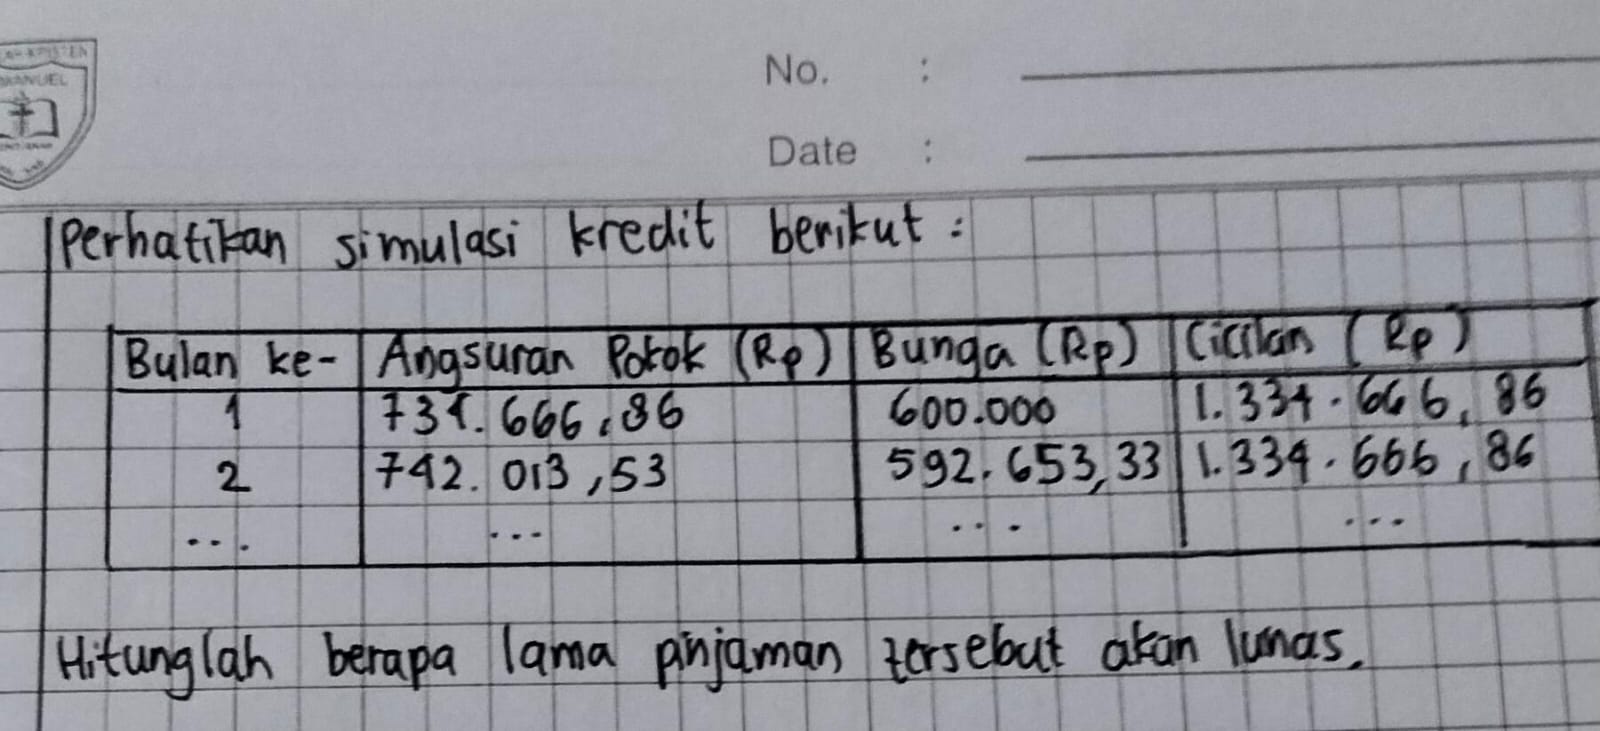 No. :
Date :
Perhatikan simulasi kredit berikut :
Bulan ke- Angsuran Pokok (Rp) Bunga (Rp) Cicilan (Rp)
1 734.666,86 600.000 1.334.666,86
2 742.013,53 592.653,33 1.334.666,86
... ... ... ...
Hitunglah berapa lama pinjaman tersebut akan lunas.